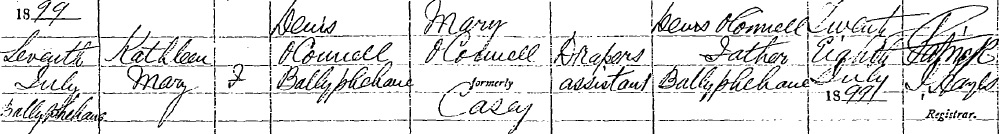 1899 Denis Mary Denis O'Connell Twenty
Seventh Kathleen O'Connell O'Connell Drapers Father Eighth Patrick
July Mary F Ballyphehane formerly assistant Ballyphehane July J. Hayes
Ballyphehane Casey 1899 Registrar.